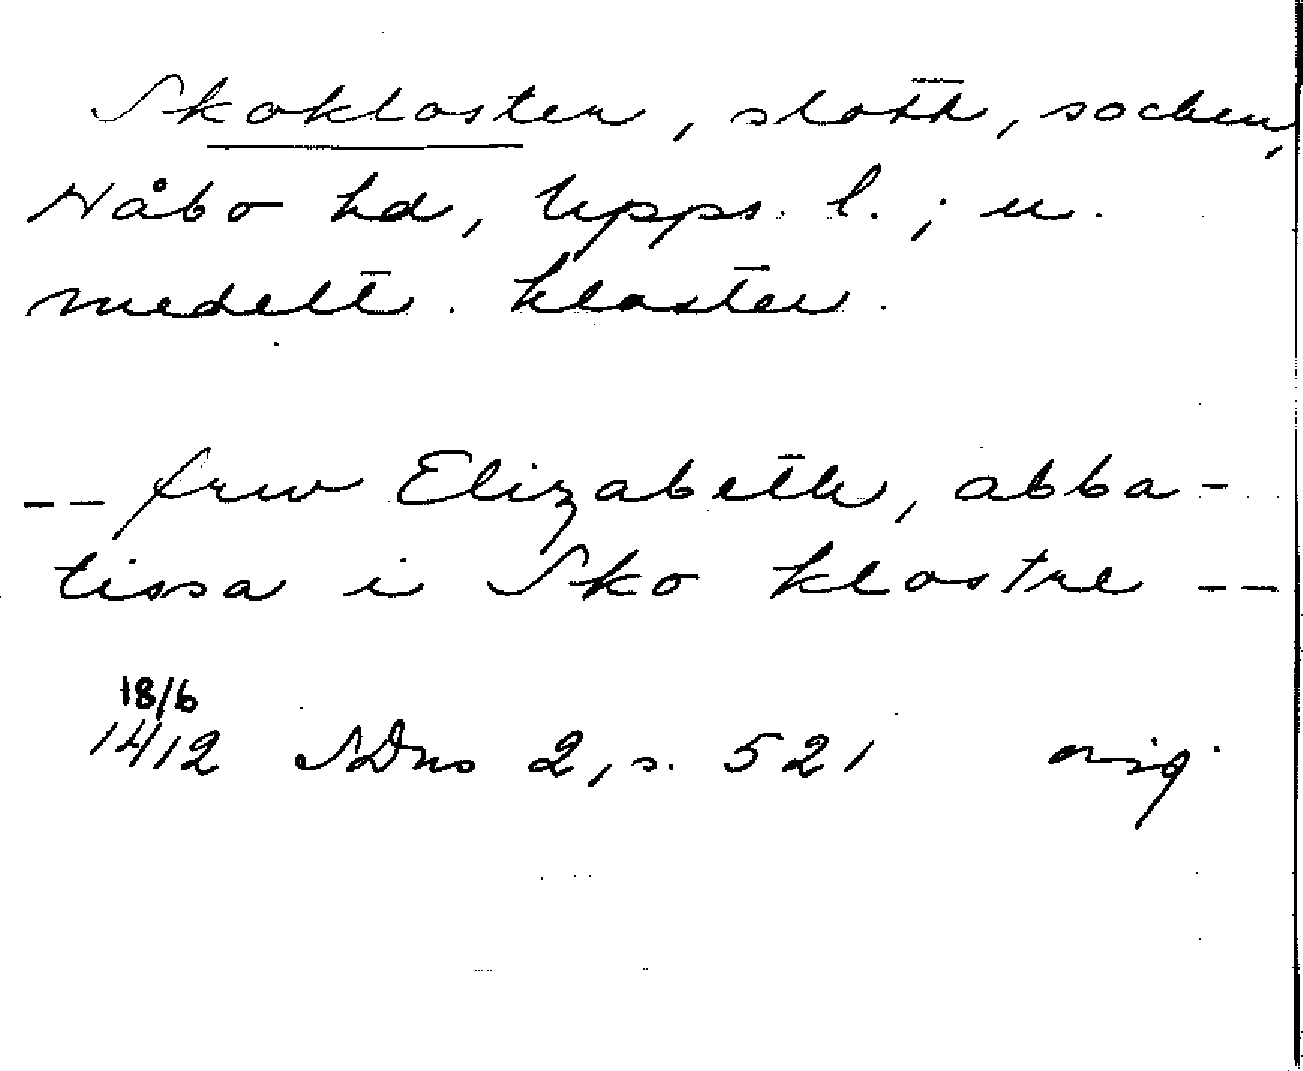 Skokloster, slott, socken,
Håbo hd, Upps. l.; u.
medelt. kloster.
-- frw Elizabeth, abba-
tissa i Sko klostre --
18/6
1412 SDns 2, s. 521 orig.